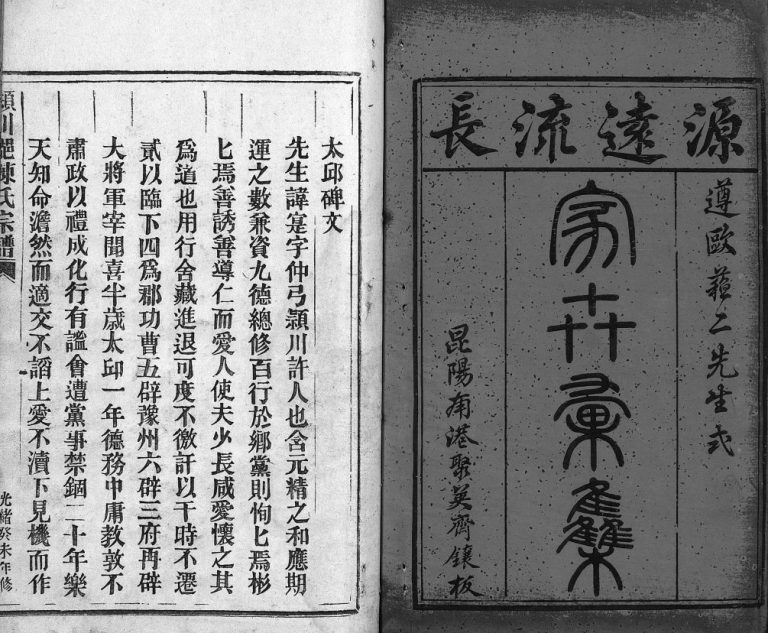 源遠流長
遵歐蘓二先生式
家卋彙雧
昆陽南港聚英齊鐫板
太邱碑文
先生諱寔字仲弓頴川許人也含元精之和應期
運之數兼資九德總修百行於鄉黨則恂匕焉彬
匕焉善誘善導仁而愛人使夫少長咸愛懷之其
爲道也用行舍藏進退可度不徼訐以干時不遷
貳以臨下四爲郡功曹五辟豫州六辟三府再辟
大將軍宰聞喜半歲太邱一年德務中庸教敦不
肅政以禮成化行有謐會遭黨事禁錮二十年樂
天知命澹然而適交不諂上愛不瀆下見機而作
頴川陳氏宗譜
光緒癸未年修